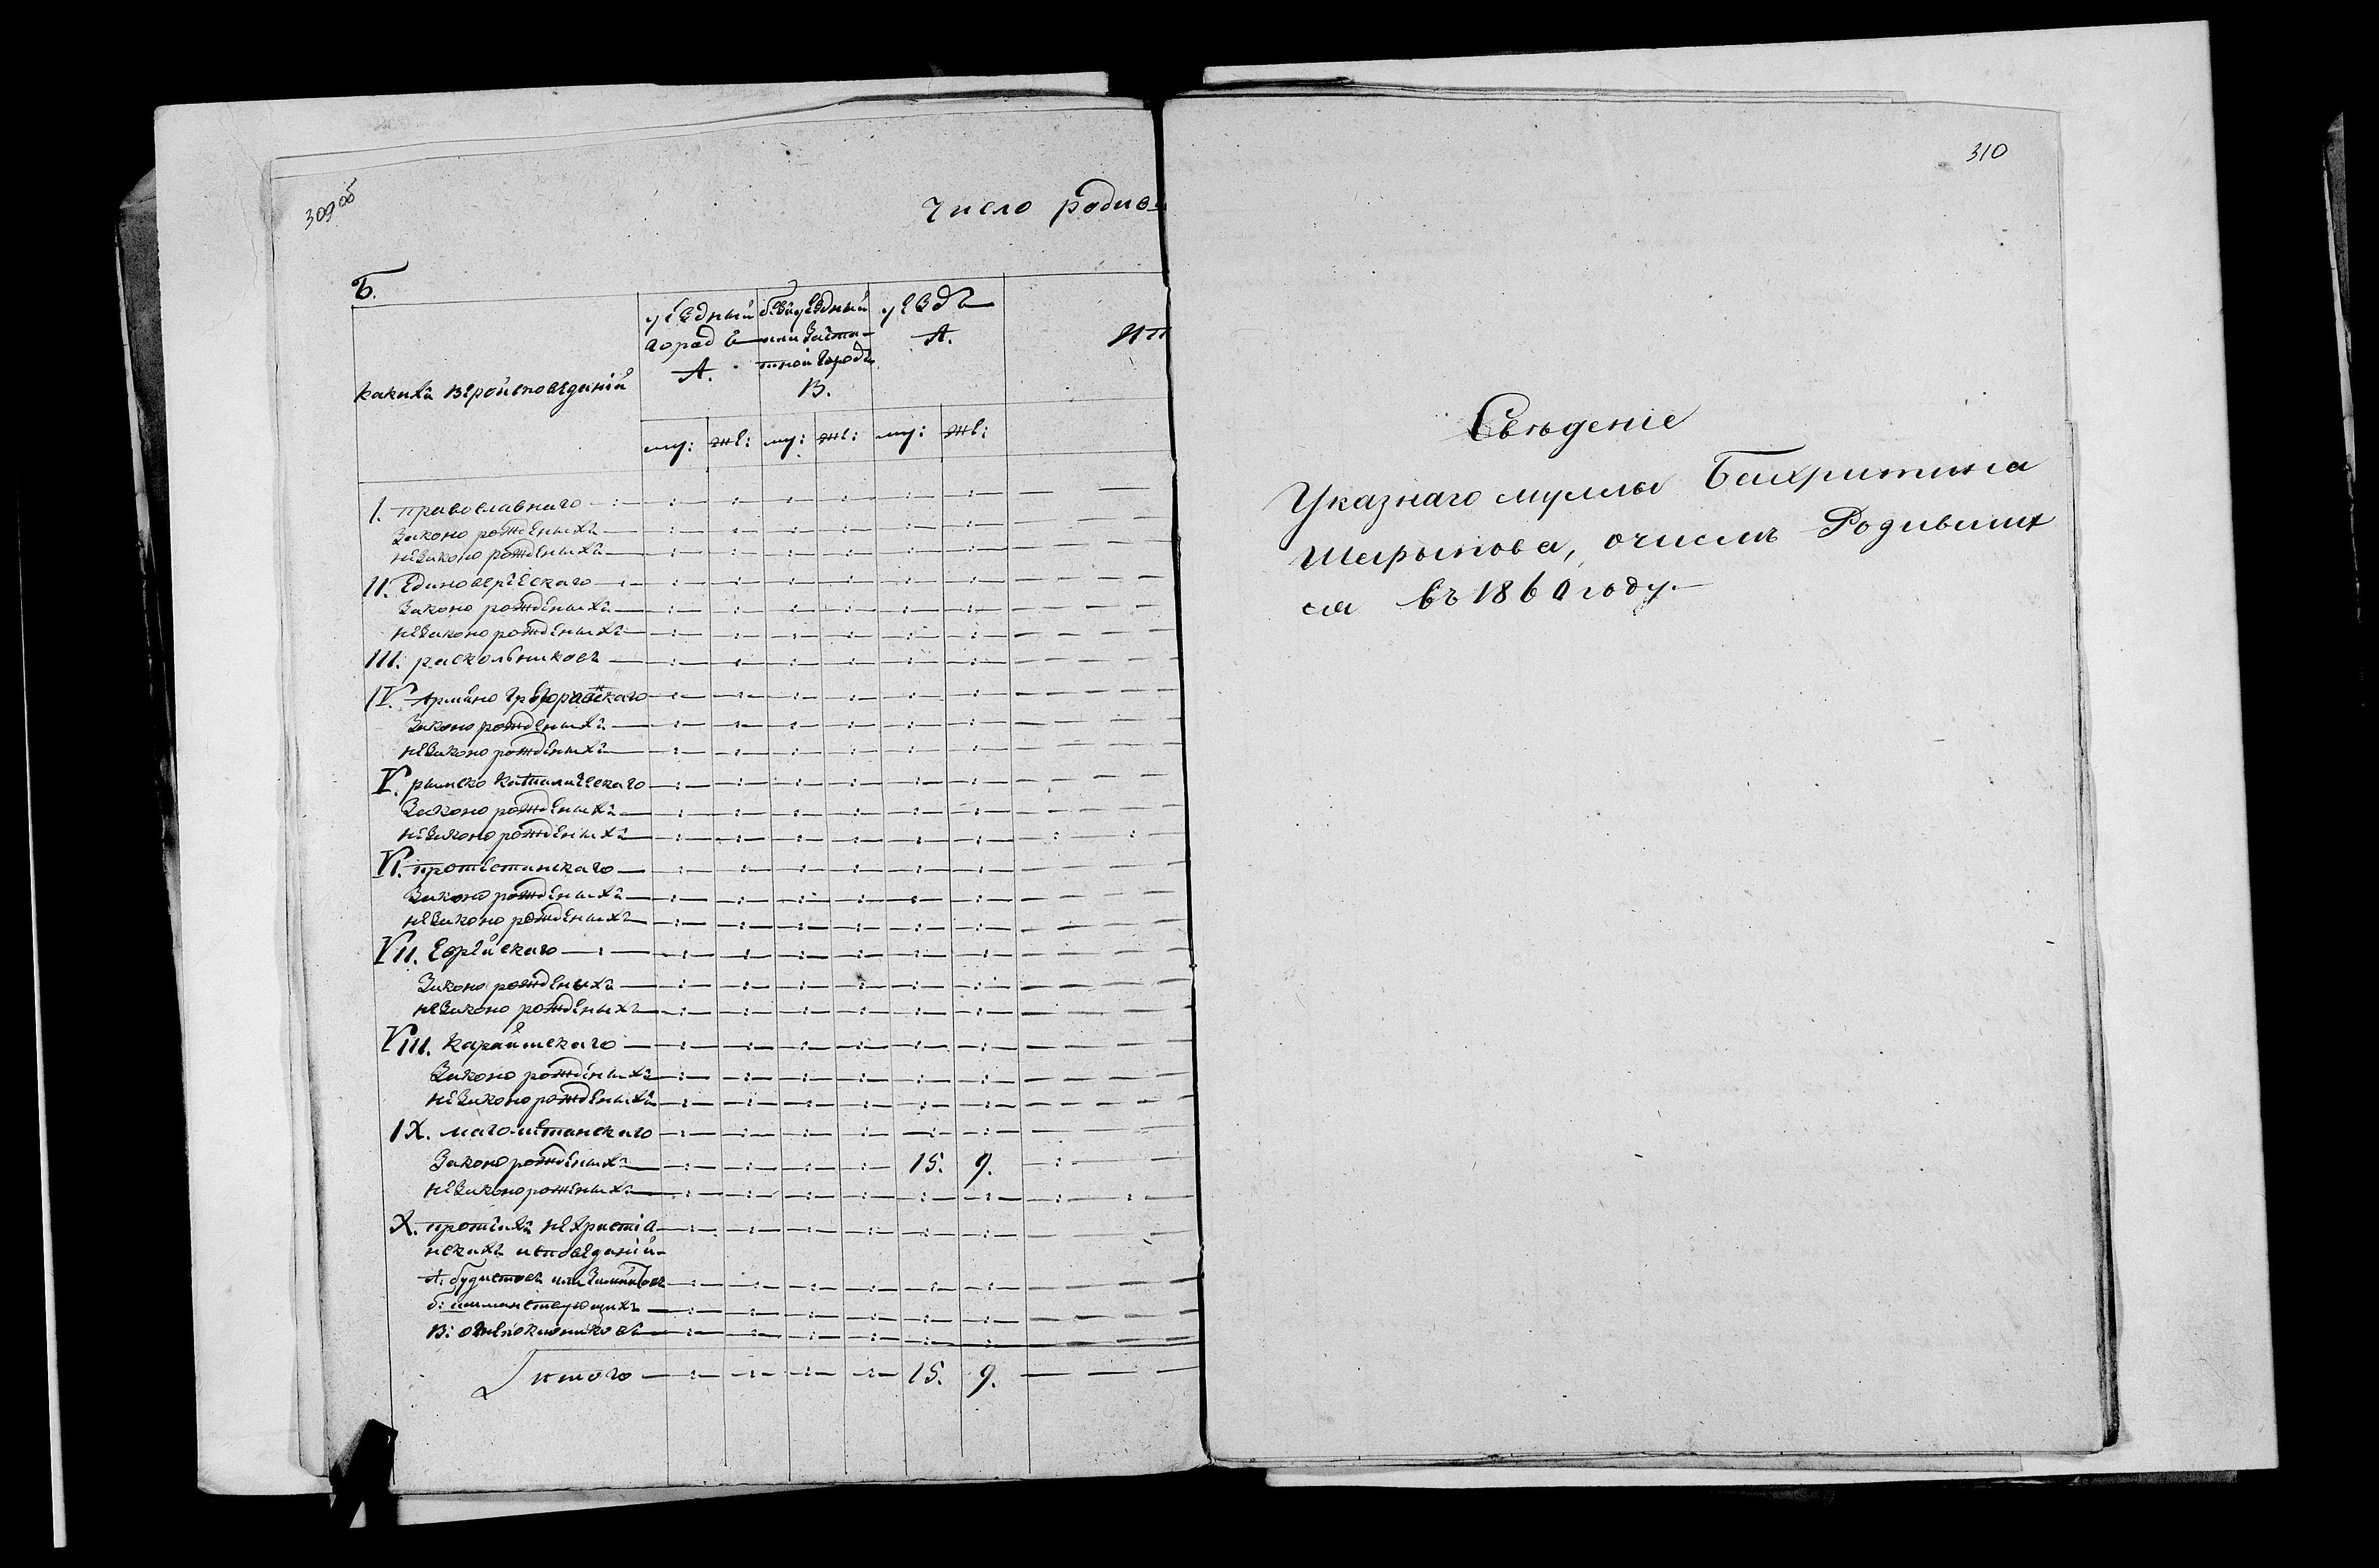 309 об
Число родив
Б.
какихъ вероисповеданiй
уездный городъ А.
безъуездный или заштатной городъ В.
уездъ А.
Ит
му: же: му: же: му: же:
I. православнаго
законо рожденыхъ
незаконо рожденыхъ
II. Единоверческаго
законо рожденыхъ
незаконо рожденыхъ
III. раскольниковъ
IV. Армяно Грегорианскаго
законо рожденыхъ
незаконо рожденыхъ
V. римско католическаго
законо рожденыхъ
незаконо рожденыхъ
VI. протестанскаго
законо рожденыхъ
незаконо рожденыхъ
VII. Еврейскаго
законо рожденыхъ
незаконо рожденыхъ
VIII. Караимскаго
законо рожденыхъ
незаконо рожденыхъ
IX. магометанскаго
законо рожденыхъ 15. 9.
незаконо роженыхъ
X. протчихъ нехристiа
нскихъ исповеданiй
А. будистовъ или
б: шаманствующихъ
В: огнепоклониковъ
итого 15. 9.
310
Свѣденiе
Указнаго муллы Баихритина
Шарыпова, очислѣ Родивших
ся въ 1860 году.